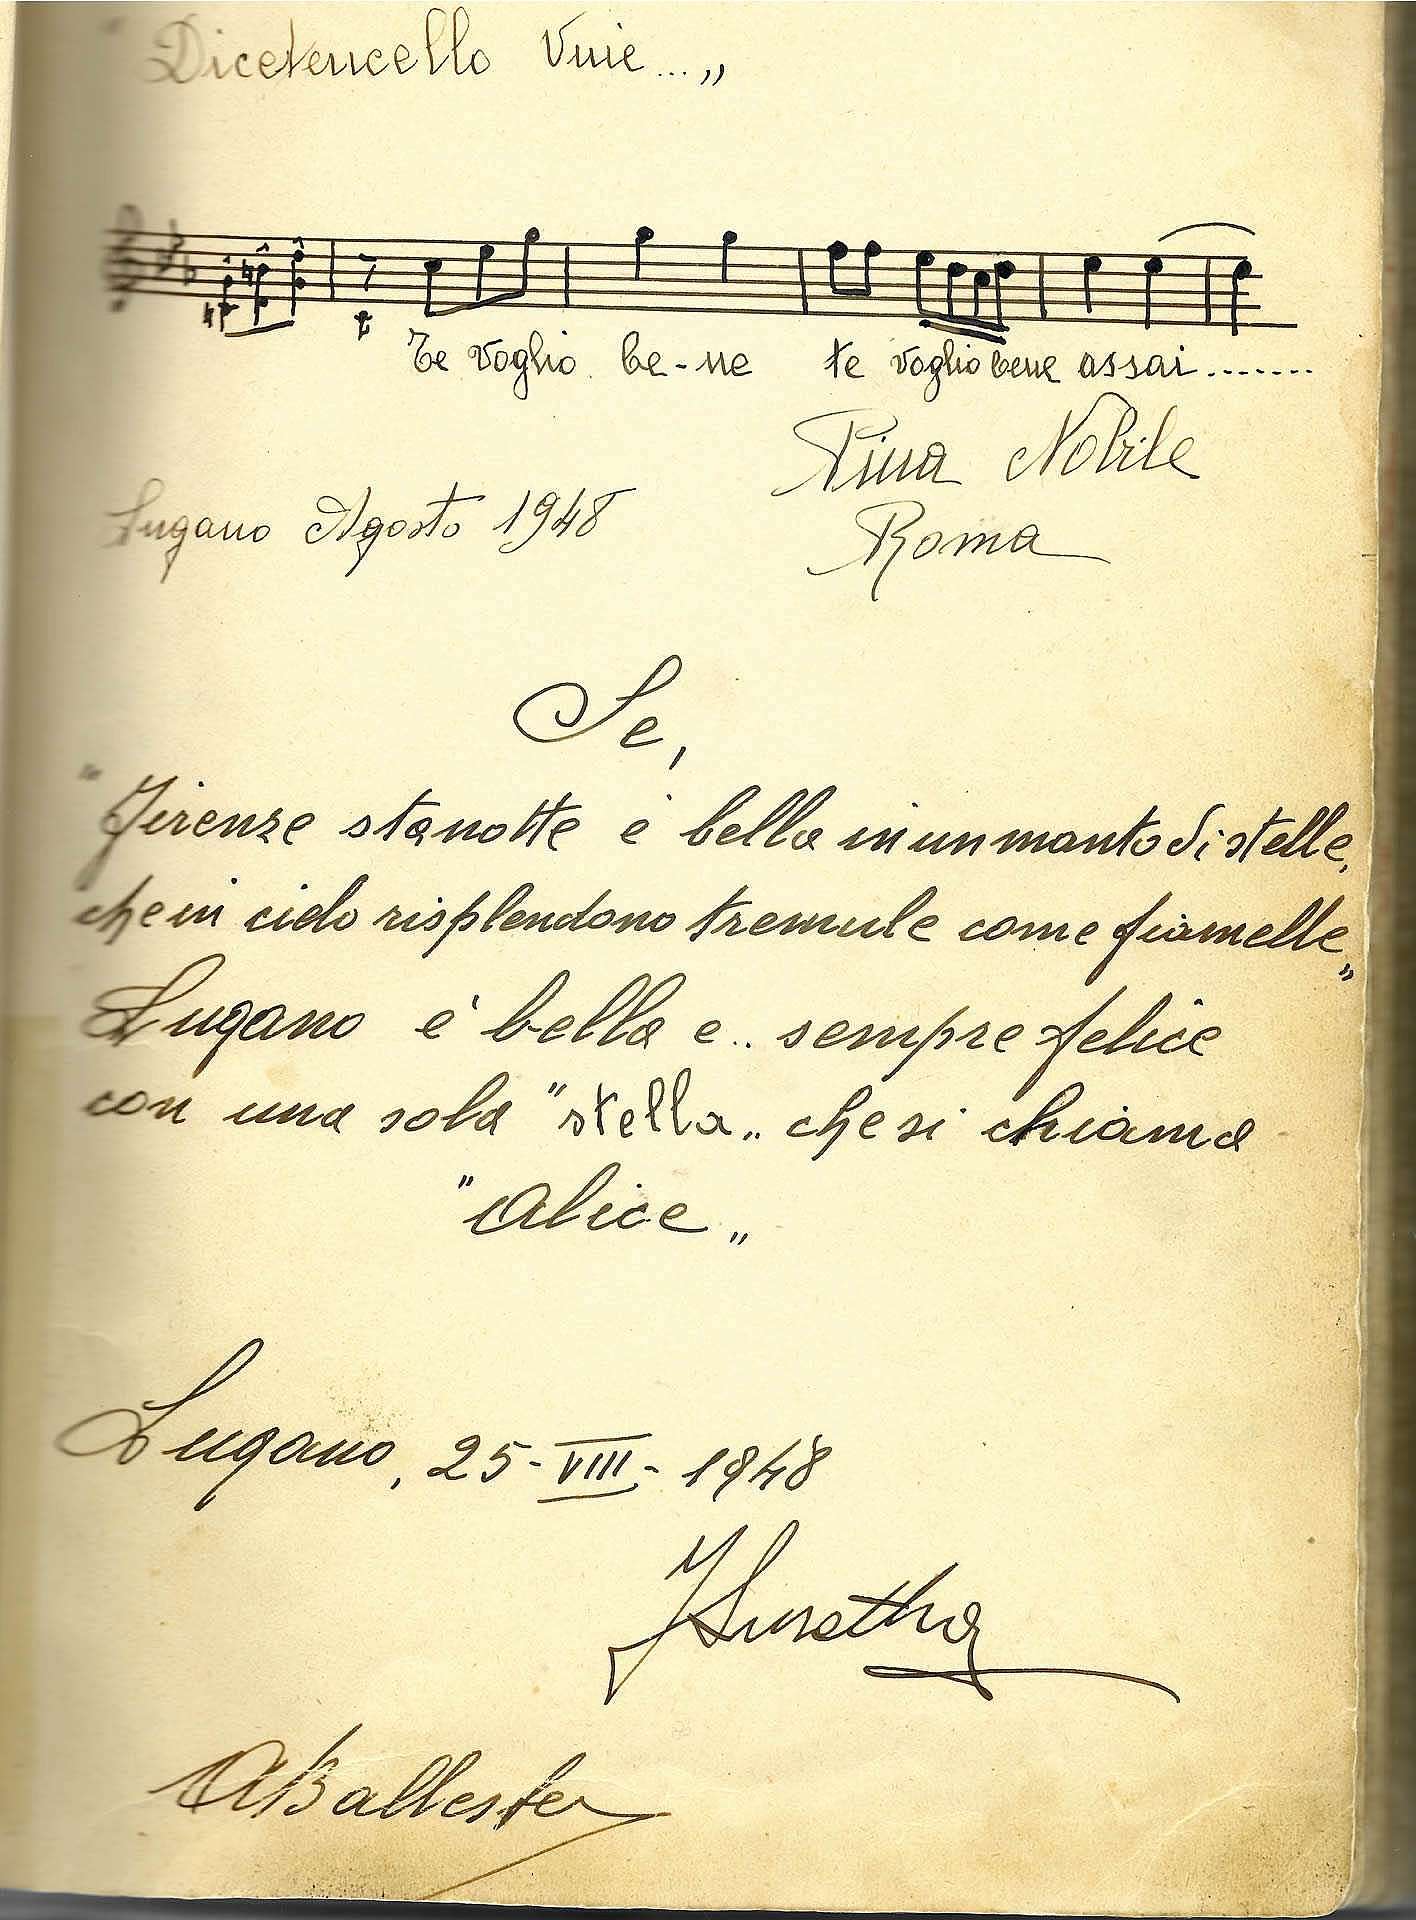 "Dicetencello Vuie...„
Te voglio be-ne te voglio bene assai.......
Pina Nobile
Lugano Agosto 1948
Roma
Se,
"Firenze stanotte è bella in un manto di stelle,
che in cielo risplendono tremule come fiamelle„
Lugano è bella e.. sempre felice
con una sola "stella„ che si chiama
"Alice„
Lugano, 25-VIII-1948
ABallester